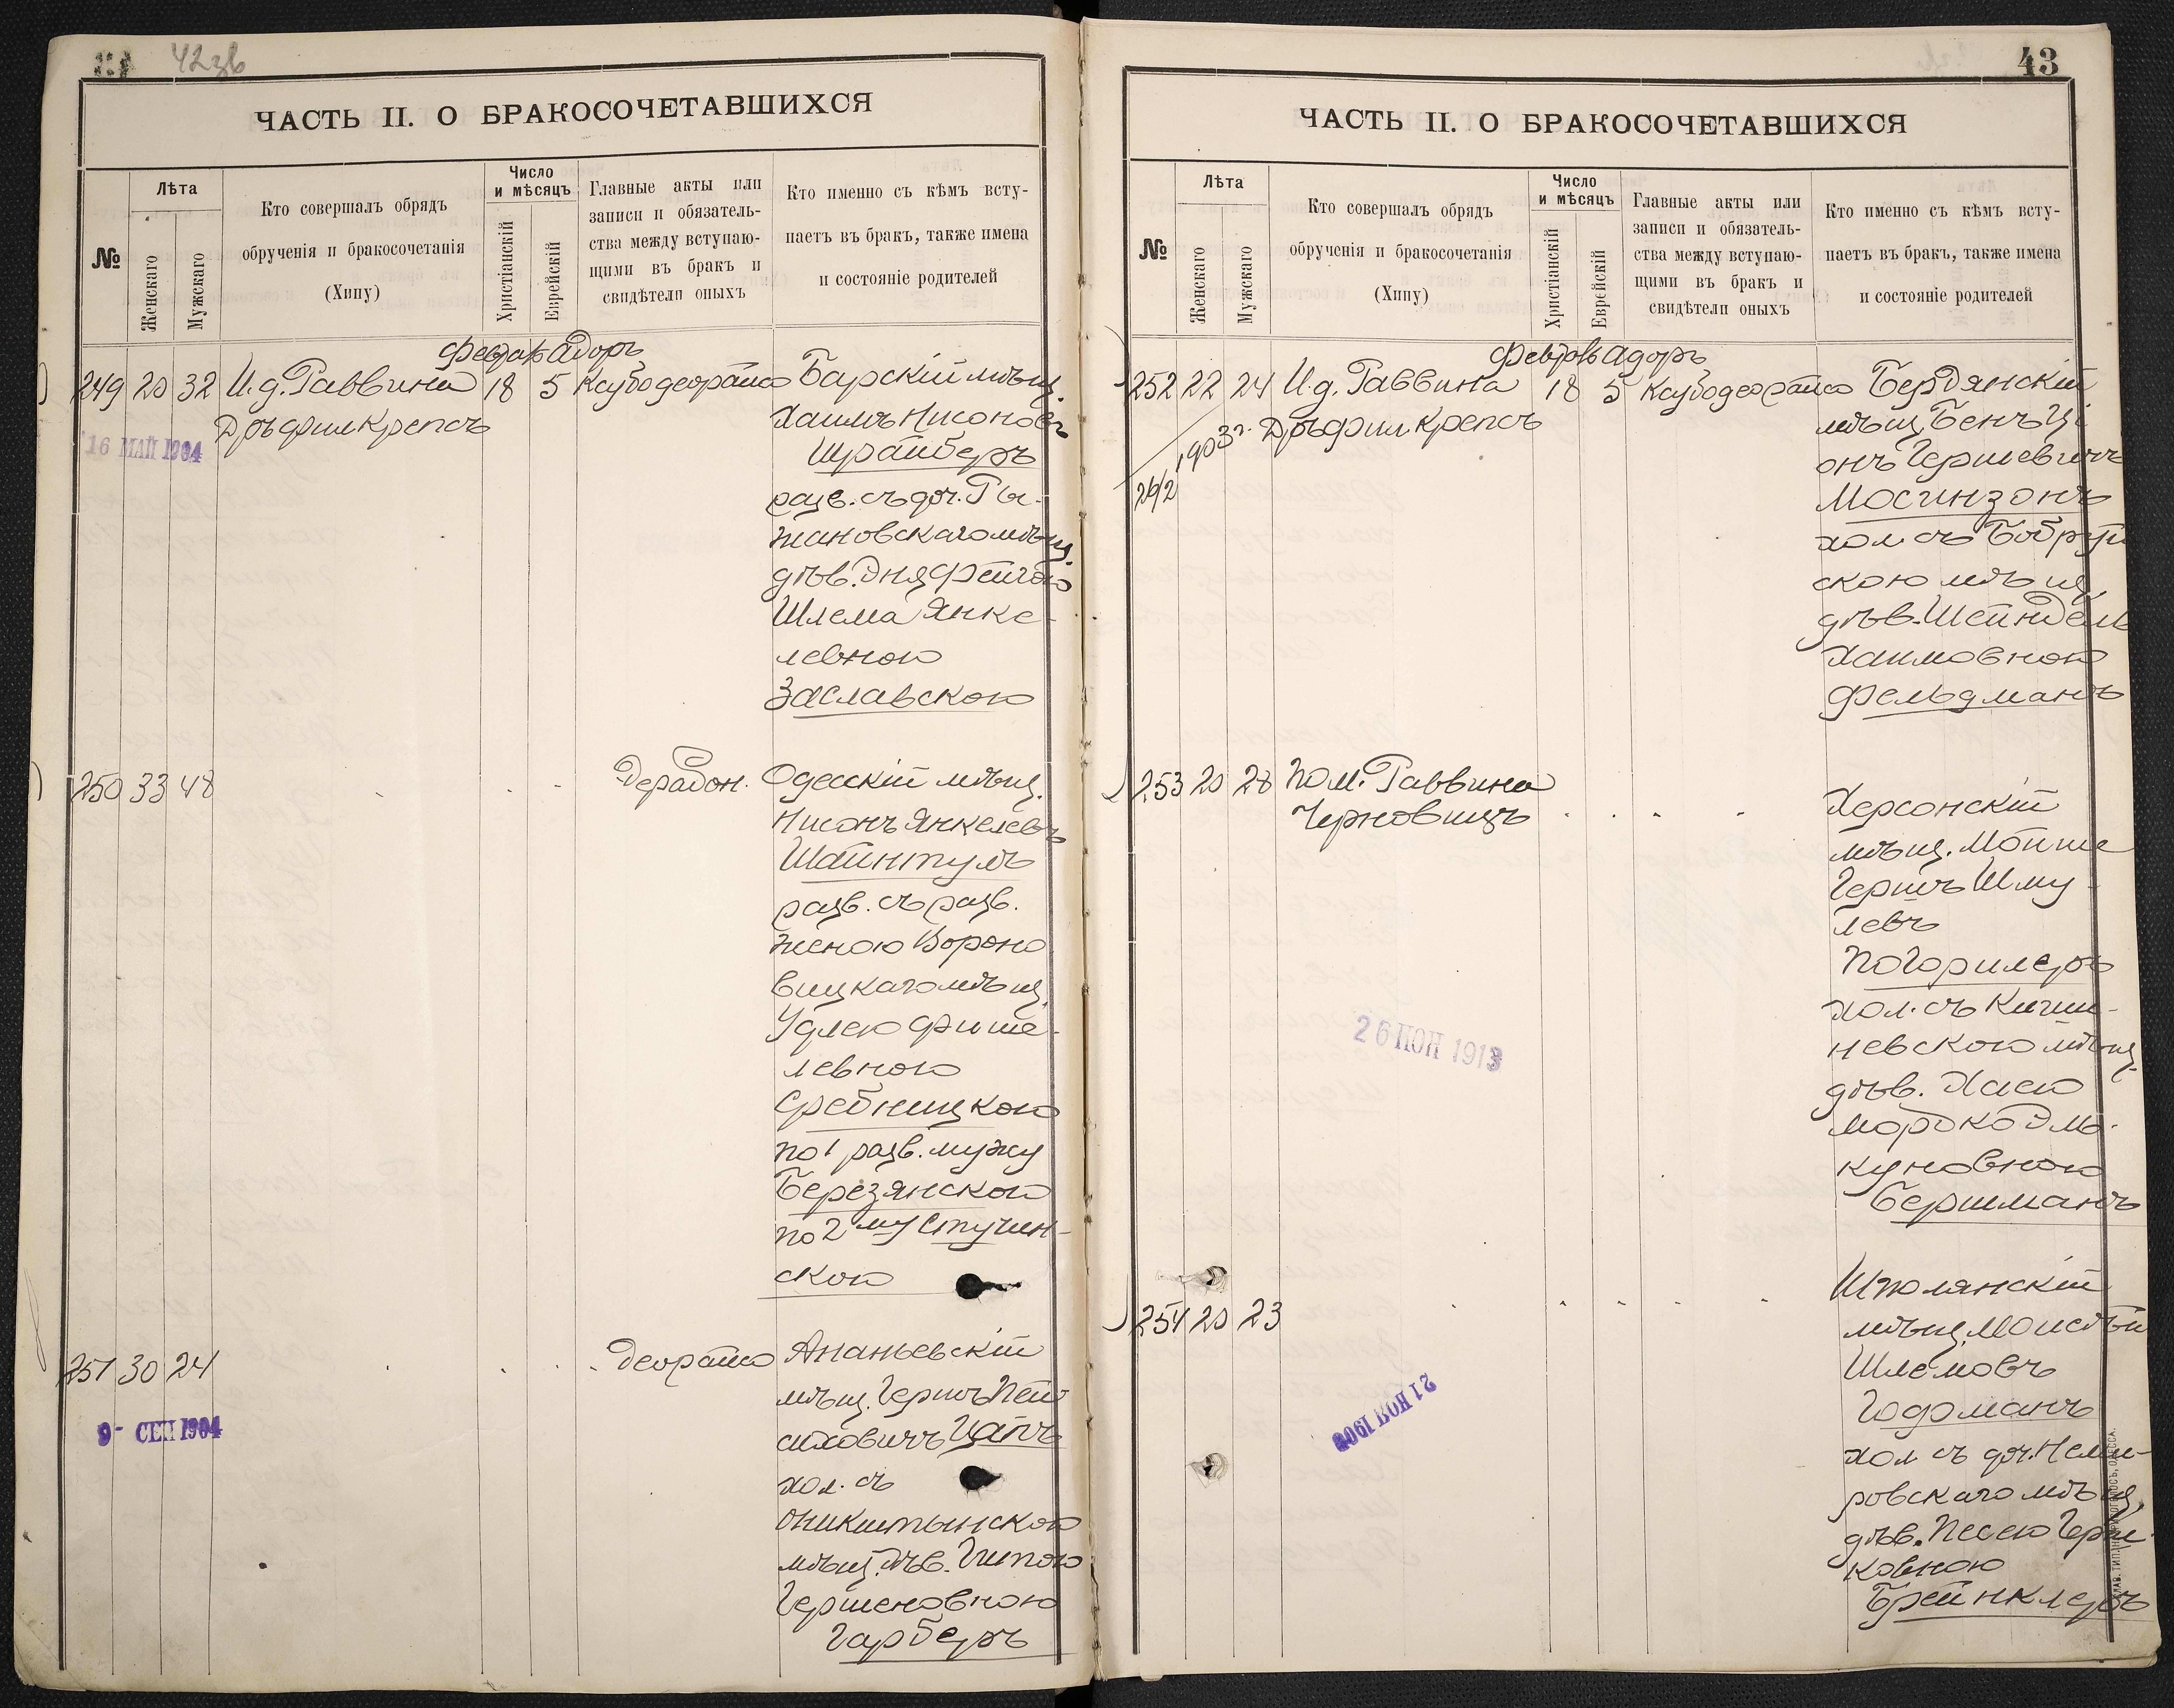 42 зв
ЧАСТЬ II. О БРАКОСОЧЕТАВШИХСЯ
№
Лѣта
Женскаго
Мужскаго
Кто совершалъ обрядъ
обрученія и бракосочетанія
(Хипу)
Число
и мѣсяцъ
Христіанскій
Еврейскій
Главные акты или
записи и обязатель-
ства между вступаю-
щими въ бракъ и
свидѣтели оныхъ
Кто именно съ кѣмъ всту-
паетъ въ бракъ, также имена
и состояніе родителей
Февраль Адоръ
249 20 32 И.д. Раввина 18 5 Барскій мѣщ.
Дръ Фил Крепсъ
16 МАЙ 1904
Хаимъ Нисоновъ
Шрайберъ
разв. съ доч. Ры-
жановскаго мѣщ.
дѣв. Эня Фейгою
Шлема Янке-
левною
Заславскою
250 33 48
Одесскій мѣщ.
Нисонъ Янкелевъ
Шайнтулъ
разв. съ разв.
женою Вороно
вицкаго мѣщ.
Удлею Фише-
левною
Сребницкою
по 1 разв. мужу
Березянскою
по 2му Стучин-
скою
251 30 24 Ананьевскій
мѣщ. Гершъ Пей
саховичъ Цапъ
хол. съ
Оникштынскою
мѣщ. дѣв. Гитою
Гершеновною
Гарберъ
9 - СЕН 1904
43
ЧАСТЬ II. О БРАКОСОЧЕТАВШИХСЯ
№
Лѣта
Женскаго
Мужскаго
Кто совершалъ обрядъ
обрученія и бракосочетанія
(Хипу)
Число
и мѣсяцъ
Христіанскій
Еврейскій
Главные акты или
записи и обязатель-
ства между вступаю-
щими въ бракъ и
свидѣтели оныхъ
Кто именно съ кѣмъ всту-
паетъ въ бракъ, также имена
и состояніе родителей
Февраль Адоръ
252 22 24 И.д. Раввина 18 5 Бердянскій
Дръ Фил Крепсъ
26/2 1903 г.
мѣщ. Бенъ Ці
онъ Гершевичъ
Мосинзонъ
хол. съ Бобруй
скою мѣщ.
дѣв. Шейндель
Хаимовною
Фельдманъ
253 20 28 Пом. Раввина
Черновицъ
Херсонскій
мѣщ. Мойше
Гершъ Шму-
левъ
Погорилеръ
хол. съ Киши-
невскою мѣщ.
дѣв. Хаею
Мордко Дмо-
куновною
Бершманъ
26 НОЯ 1913
254 20 23
Шполянскій
мѣщ. Моисѣй
Шлемовъ
Гофманъ
хол. съ доч. Неми-
ровскаго мѣщ.
дѣв. Песею Герш
ковною
Брейнклеръ
21 НОЯ 1908